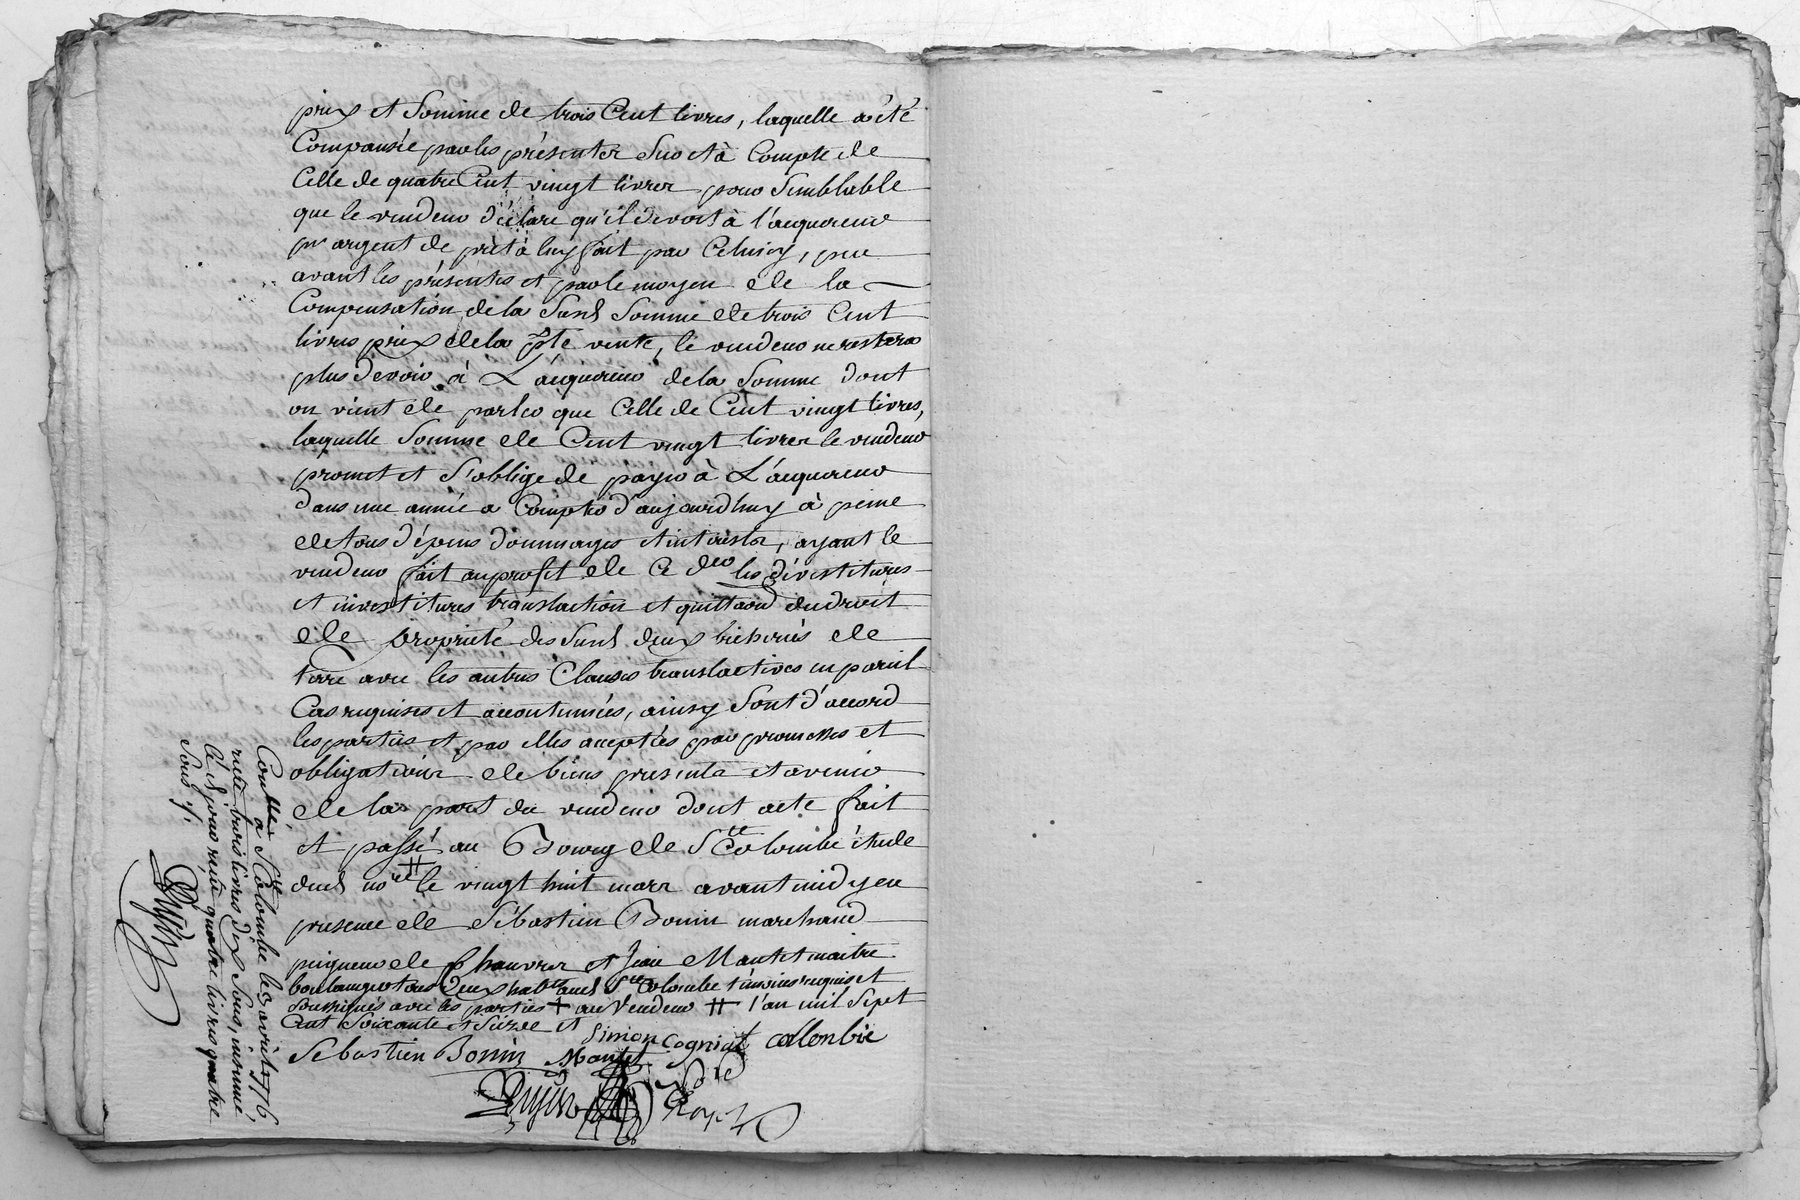 prix et Somme de trois Cent livres, laquelle a été
Compansée par les présentes Sur et à Compte de
Celle de quatre Cent vingt livres pour Semblable
que le vendeur déclare qu'il devoit à l'acquereur
pr argent de prêt à luy fait par Celuicy,
avant les présentes et par le moyen de la
Compensation de la Susd Somme de trois Cent
livres prix de la pste vente, le vendeur ne restera
plus devoir à L'acquereur de la Somme dont
on vient de parler que Celle de Cent vingt livres,
laquelle Somme de Cent vingt livres le vendeur
promet et S'oblige de payer à L'acquereur
dans une année a Compter d'aujourd'huy à peine
de tous dépens dommages et interests, ayant le
vendeur fait au profit de Ce der les dévestitures
et investitures translaction et du droit
de propriété des Susd deux bicherées de
terre avec les autres Clauses translactives en pareil
Cas requises et accoutumées, ainsy Sont d'accord
les parties et par Elles acceptées par promesses et
obligations de biens presents et avenir
de la part du vendeur dont acte fait
et passé au Bourg de Ste Colombe étude
dud nore le vingt huit mars avant midy en
presence de Sébastien Bonin marchand
peigneur de Chanvres et Jean Mantet maitre
boulanger tous deux habts aud Ste Colombe témoins requis et
Soussignés avec les parties + au Vendeur ++ l'an mil Sept
Cent Soixante et Seize et
Simon Cogniat collonbié
Sebastien Bonin Mantet
Dujin
Conllé à Ste Colombe le 5 avril 1776
reçu trois livres dix Sous, insinué
led jour reçu quatre livres quatre
Sous ./.
Dujin